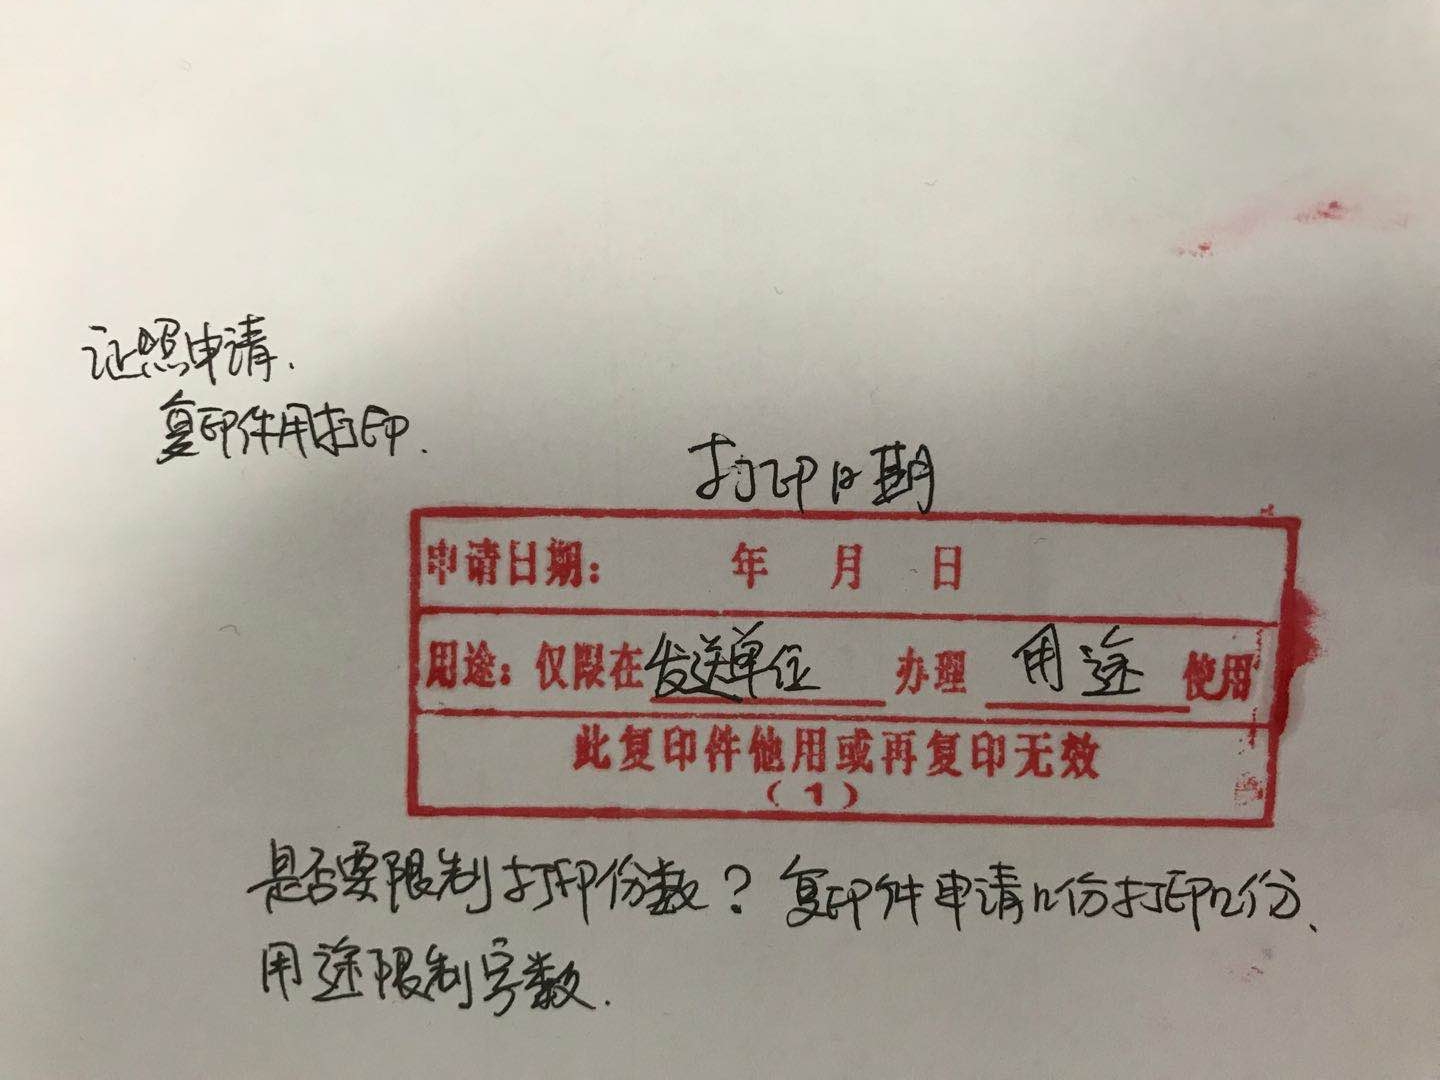 证照申请.
复印件用打印.
打印日期
申请日期： 年 月 日
用途：仅限在发送单位 办理 用途 使用
此复印件他用或再复印无效
（1）
是否要限制打印份数？复印件申请n份打印n份、
用途限制字数.